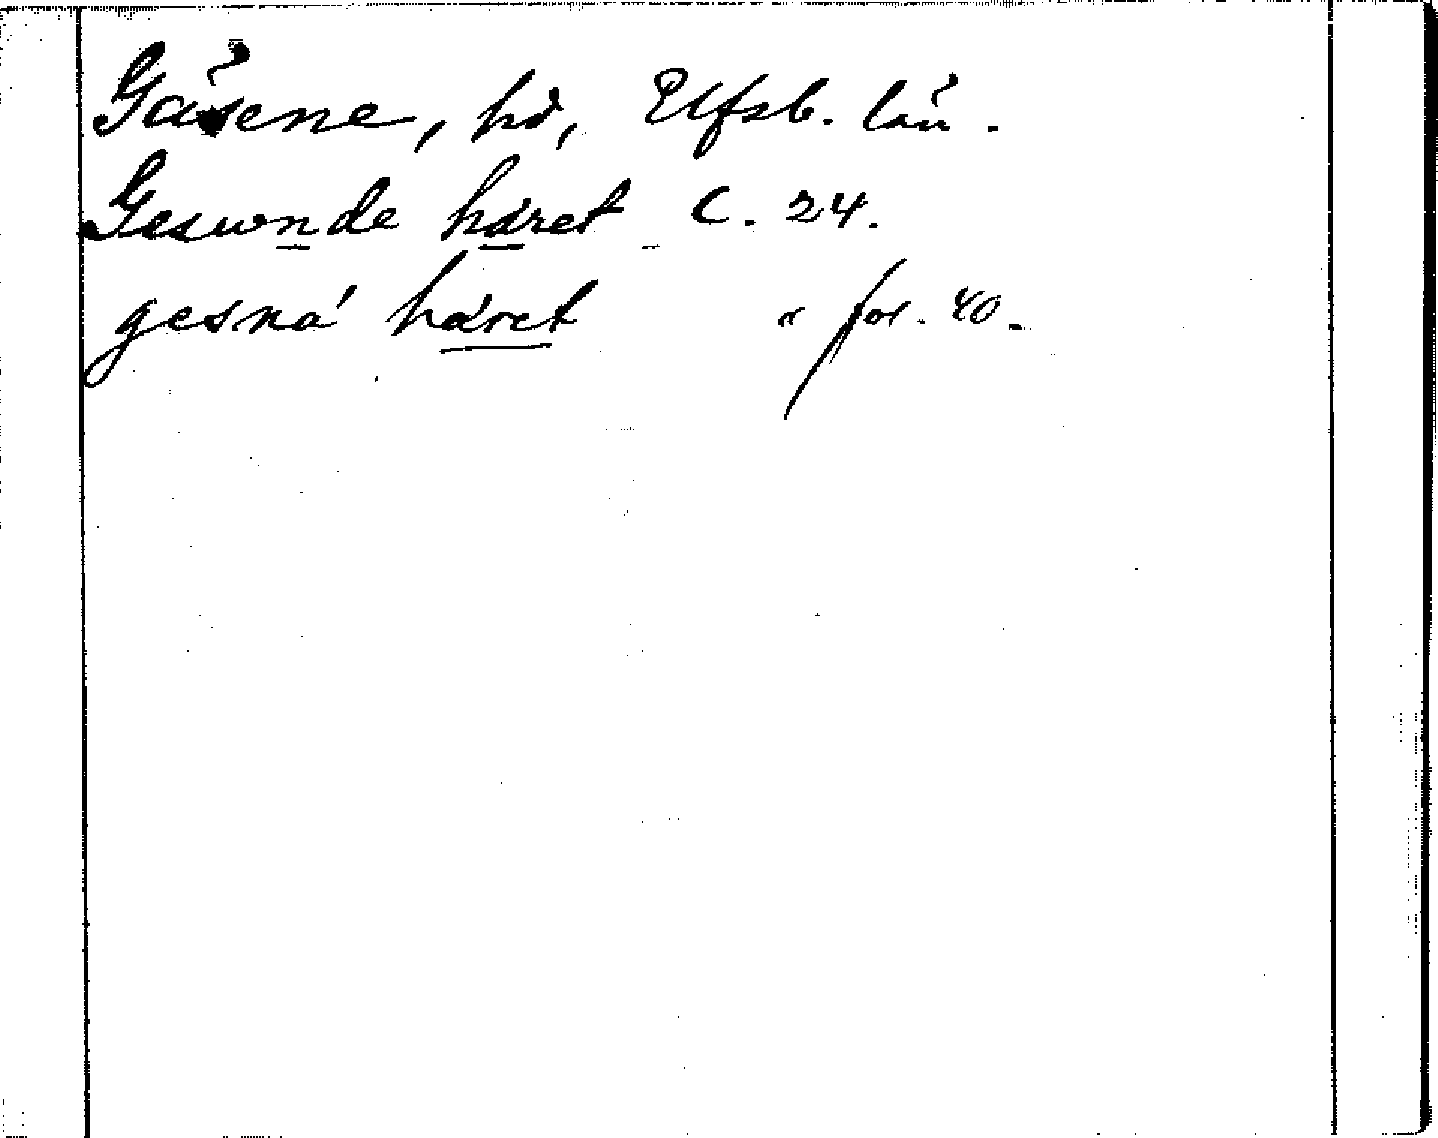 Gäsene, hd, Elfsb. län.
Geswnde häret C. 24.
gesnä häret " fol. 40.